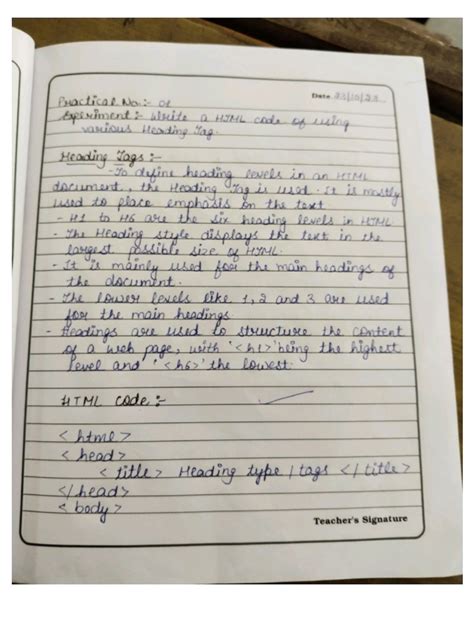 Date 23/10/23
Practical No :- 01
Experiment :- Write a HTML code of using
various Heading Tag.
Heading Tags :-
- To define heading levels in an HTML
document, the Heading Tag is used. It is mostly
used to place emphasis on the text
- H1 to H6 are the six heading levels in HTML.
- The Heading style displays the text in the
largest possible size of HTML.
- It is mainly used for the main headings of
the document.
- The lower levels like 1, 2 and 3 are used
for the main headings.
- Headings are used to structure the content
of a web page, with '<h1>' being the highest
level and '<h6>' the lowest.
HTML code :-
<html>
<head>
<title> Heading type / tags </title>
</head>
<body>
Teacher's Signature